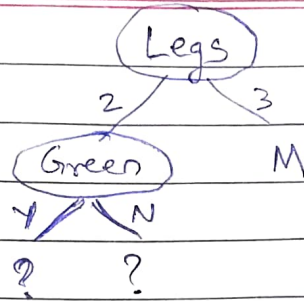 Legs
2 3
Green M
Y N
? ?